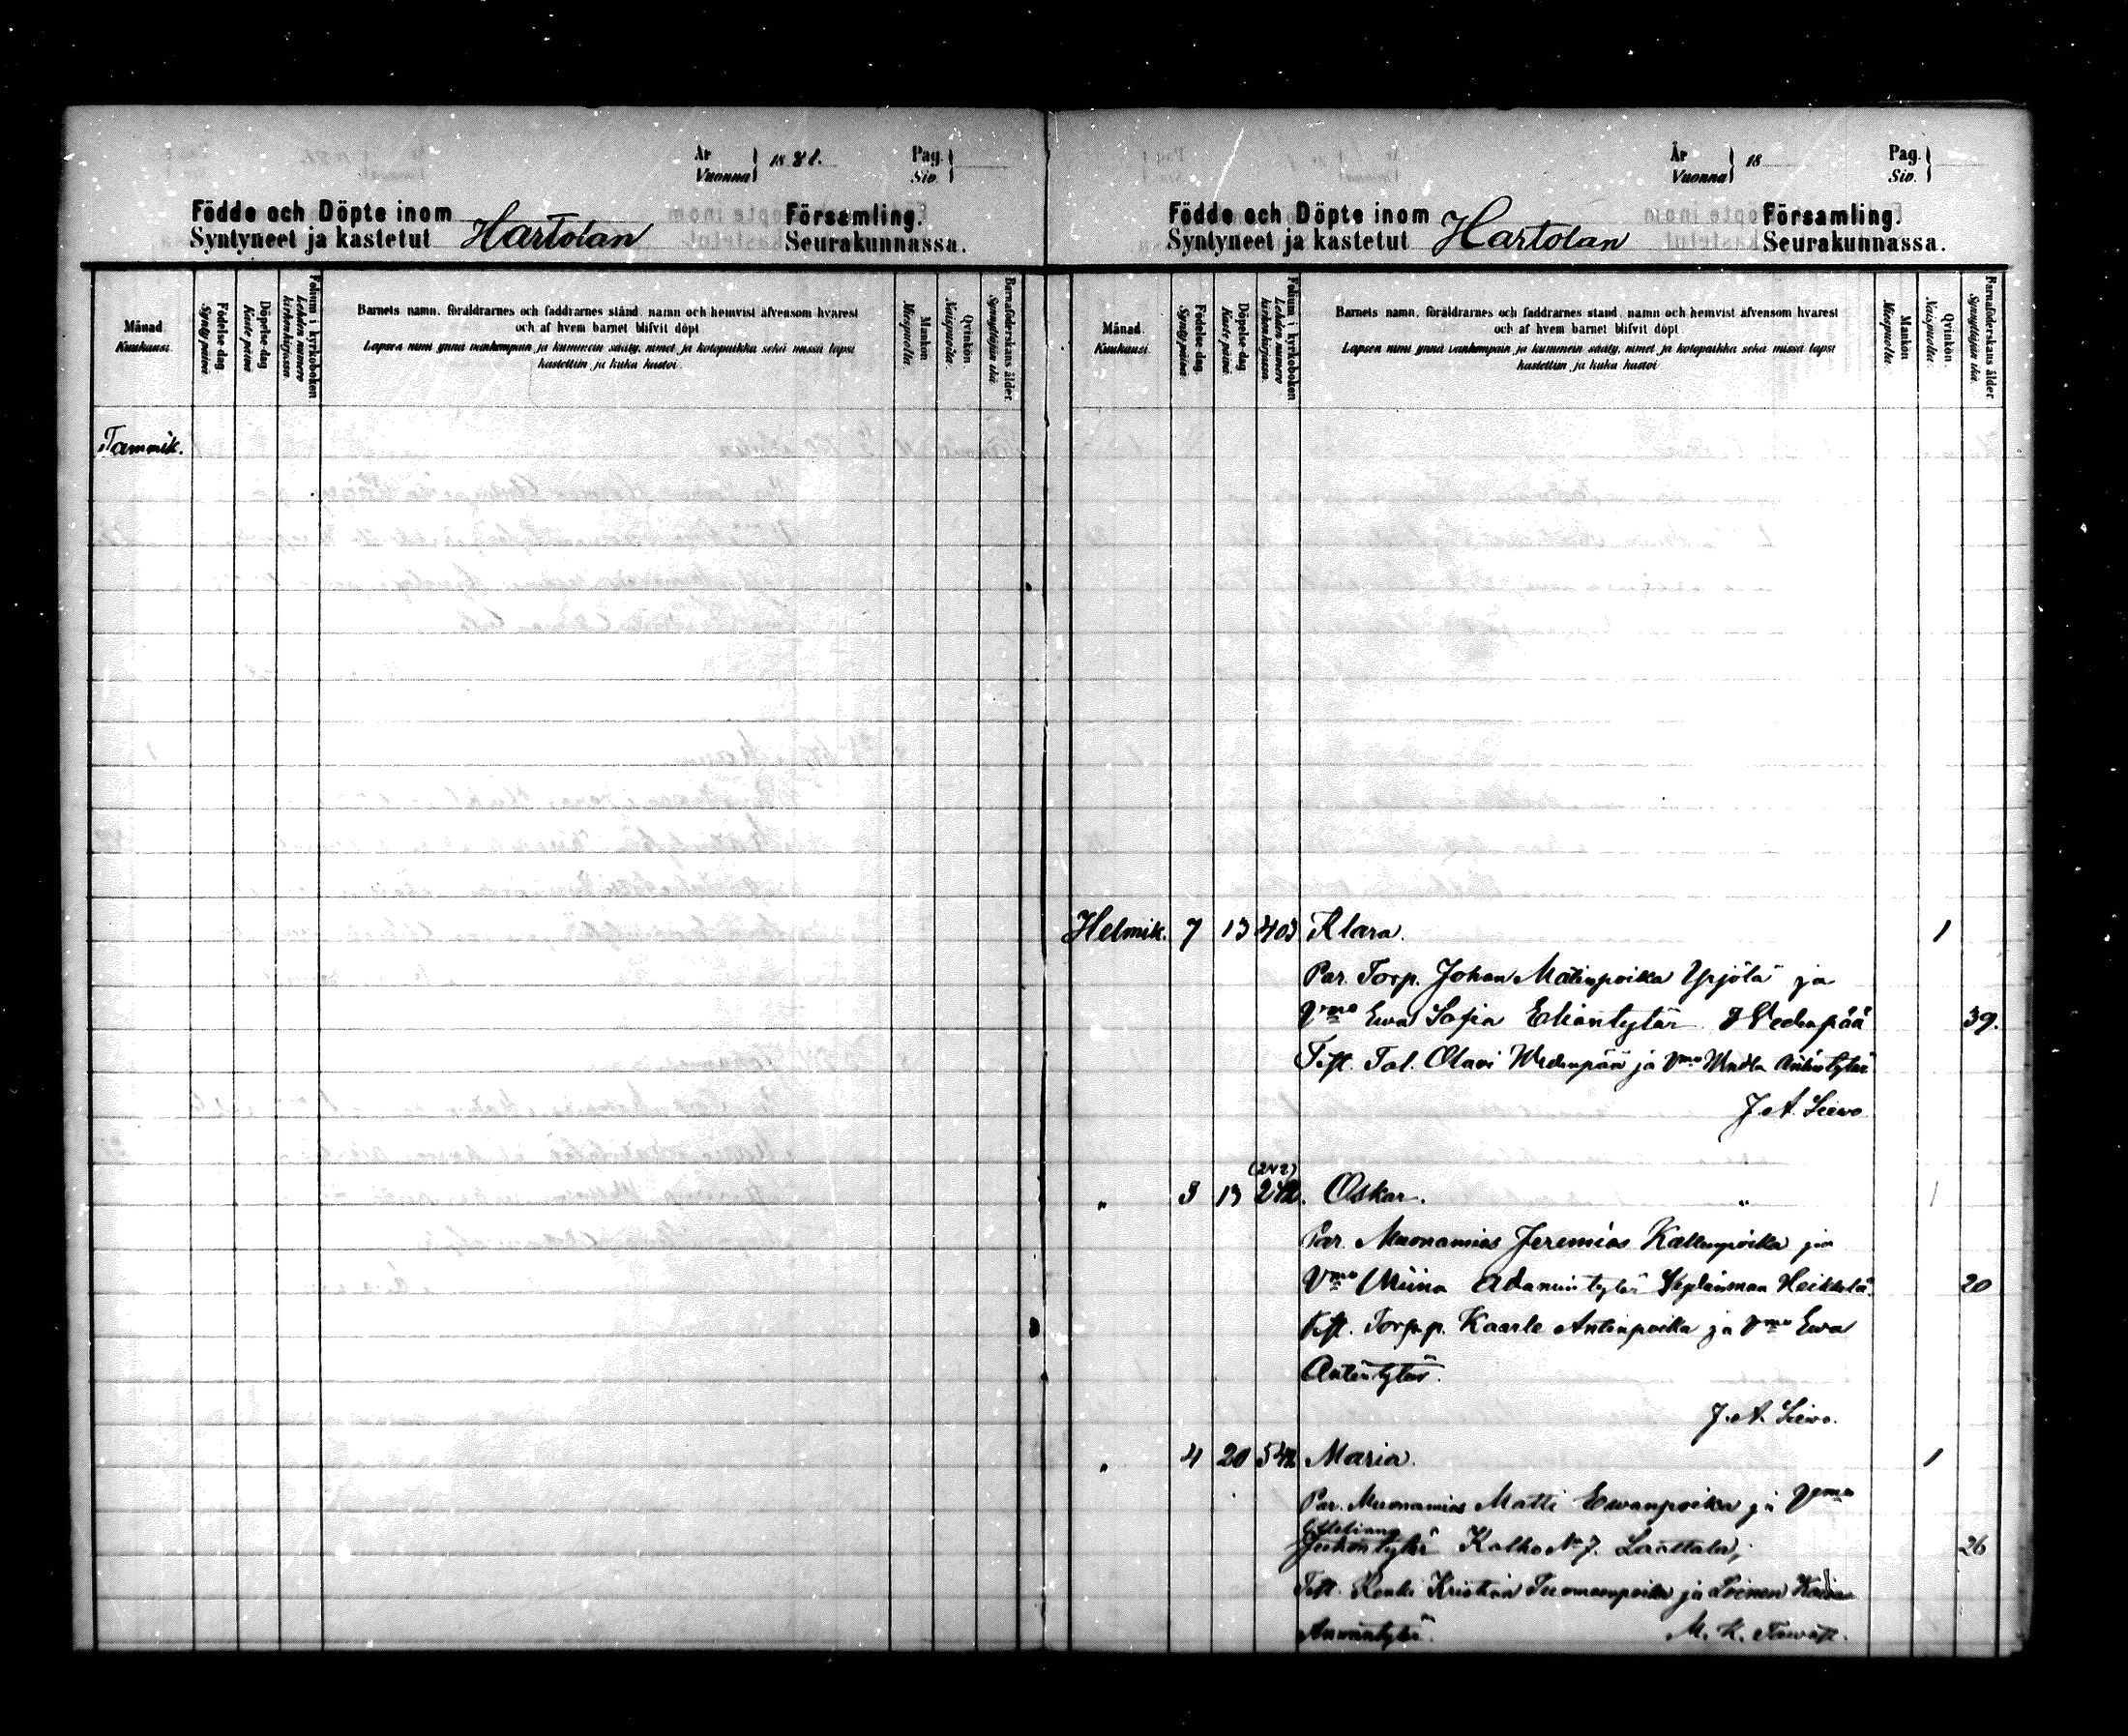 År
Vuonna } 1881.
Pag.
Siv. }
Födde och Döpte inom
Syntyneet ja kastetut
Hartolan
Församling.
Seurakunnassa.
Månad.
Kuukausi.
Födelse-dag
Synty-päivä.
Döpelse-dag
Kaste-päivä
Folium i kyrkoboken
Lehden numero
kirkonkirjassa.
Barnets namn, föräldrarnes och faddrarnes stånd, namn och hemvist äfvensom hvarest
och af hvem barnet blifvit döpt
Lapsen nimi ynnä vanhempain ja kummein sääty, nimet ja kotopaikka sekä missä lapsi
kastettiin ja kuka kastoi
Mankön
Miespuolta.
Qvinkön.
Naispuolta.
Barnaföderskans ålder.
Synnyttäjän ikä.
Tammik.
År
Vuonna } 18
Pag.
Siv. }
Födde och Döpte inom
Syntyneet ja kastetut
Hartolan
Församling.
Seurakunnassa.
Månad.
Kuukausi.
Födelse-dag
Synty-päivä.
Döpelse-dag
Kaste-päivä.
Folium i kyrkoboken
Lehden numero
kirkonkirjassa.
Barnets namn, föräldrarnes och faddrarnes stånd, namn och hemvist äfvensom hvarest
och af hvem barnet blifvit döpt.
Lapsen nimi ynnä vanhempain ja kummein sääty, nimet ja kotopaikka sekä missä lapsi
kastettiin ja kuka kastoi
Mankön
Miespuolta.
Qvinkön.
Naispuolta.
Barnaföderskans ålder
Synnyttäjän ikä.
Helmik. 7 13 403 Klara. 1
Par. Torp. Johan Matinpoika Yrjölä ja
Vmo Ewa Sofia Eliantytär Wedenpää 39.
Test. Tal. Olavi Wedenpää ja Vmo Antintytär
J. A. Siewo
(242)
" 3 13 242. Oskar. " 1
Par. Muonamies Jeremias Kallenpoika ja
Vmo Miina Adamintytär Heikkilä. 20
Test. Torp.p. Kaarle Antinpoika ja Vmo Ewa
Antintytär.
J. A. Siewo.
" 4 20 542 Maria. 1
Par. Muonamies Matti Ewanpoika ja Vmo
Juhontytär Kalho No 7. 26
Test. Renki Kristian Tuomaanpoika ja Loinen
M. K.